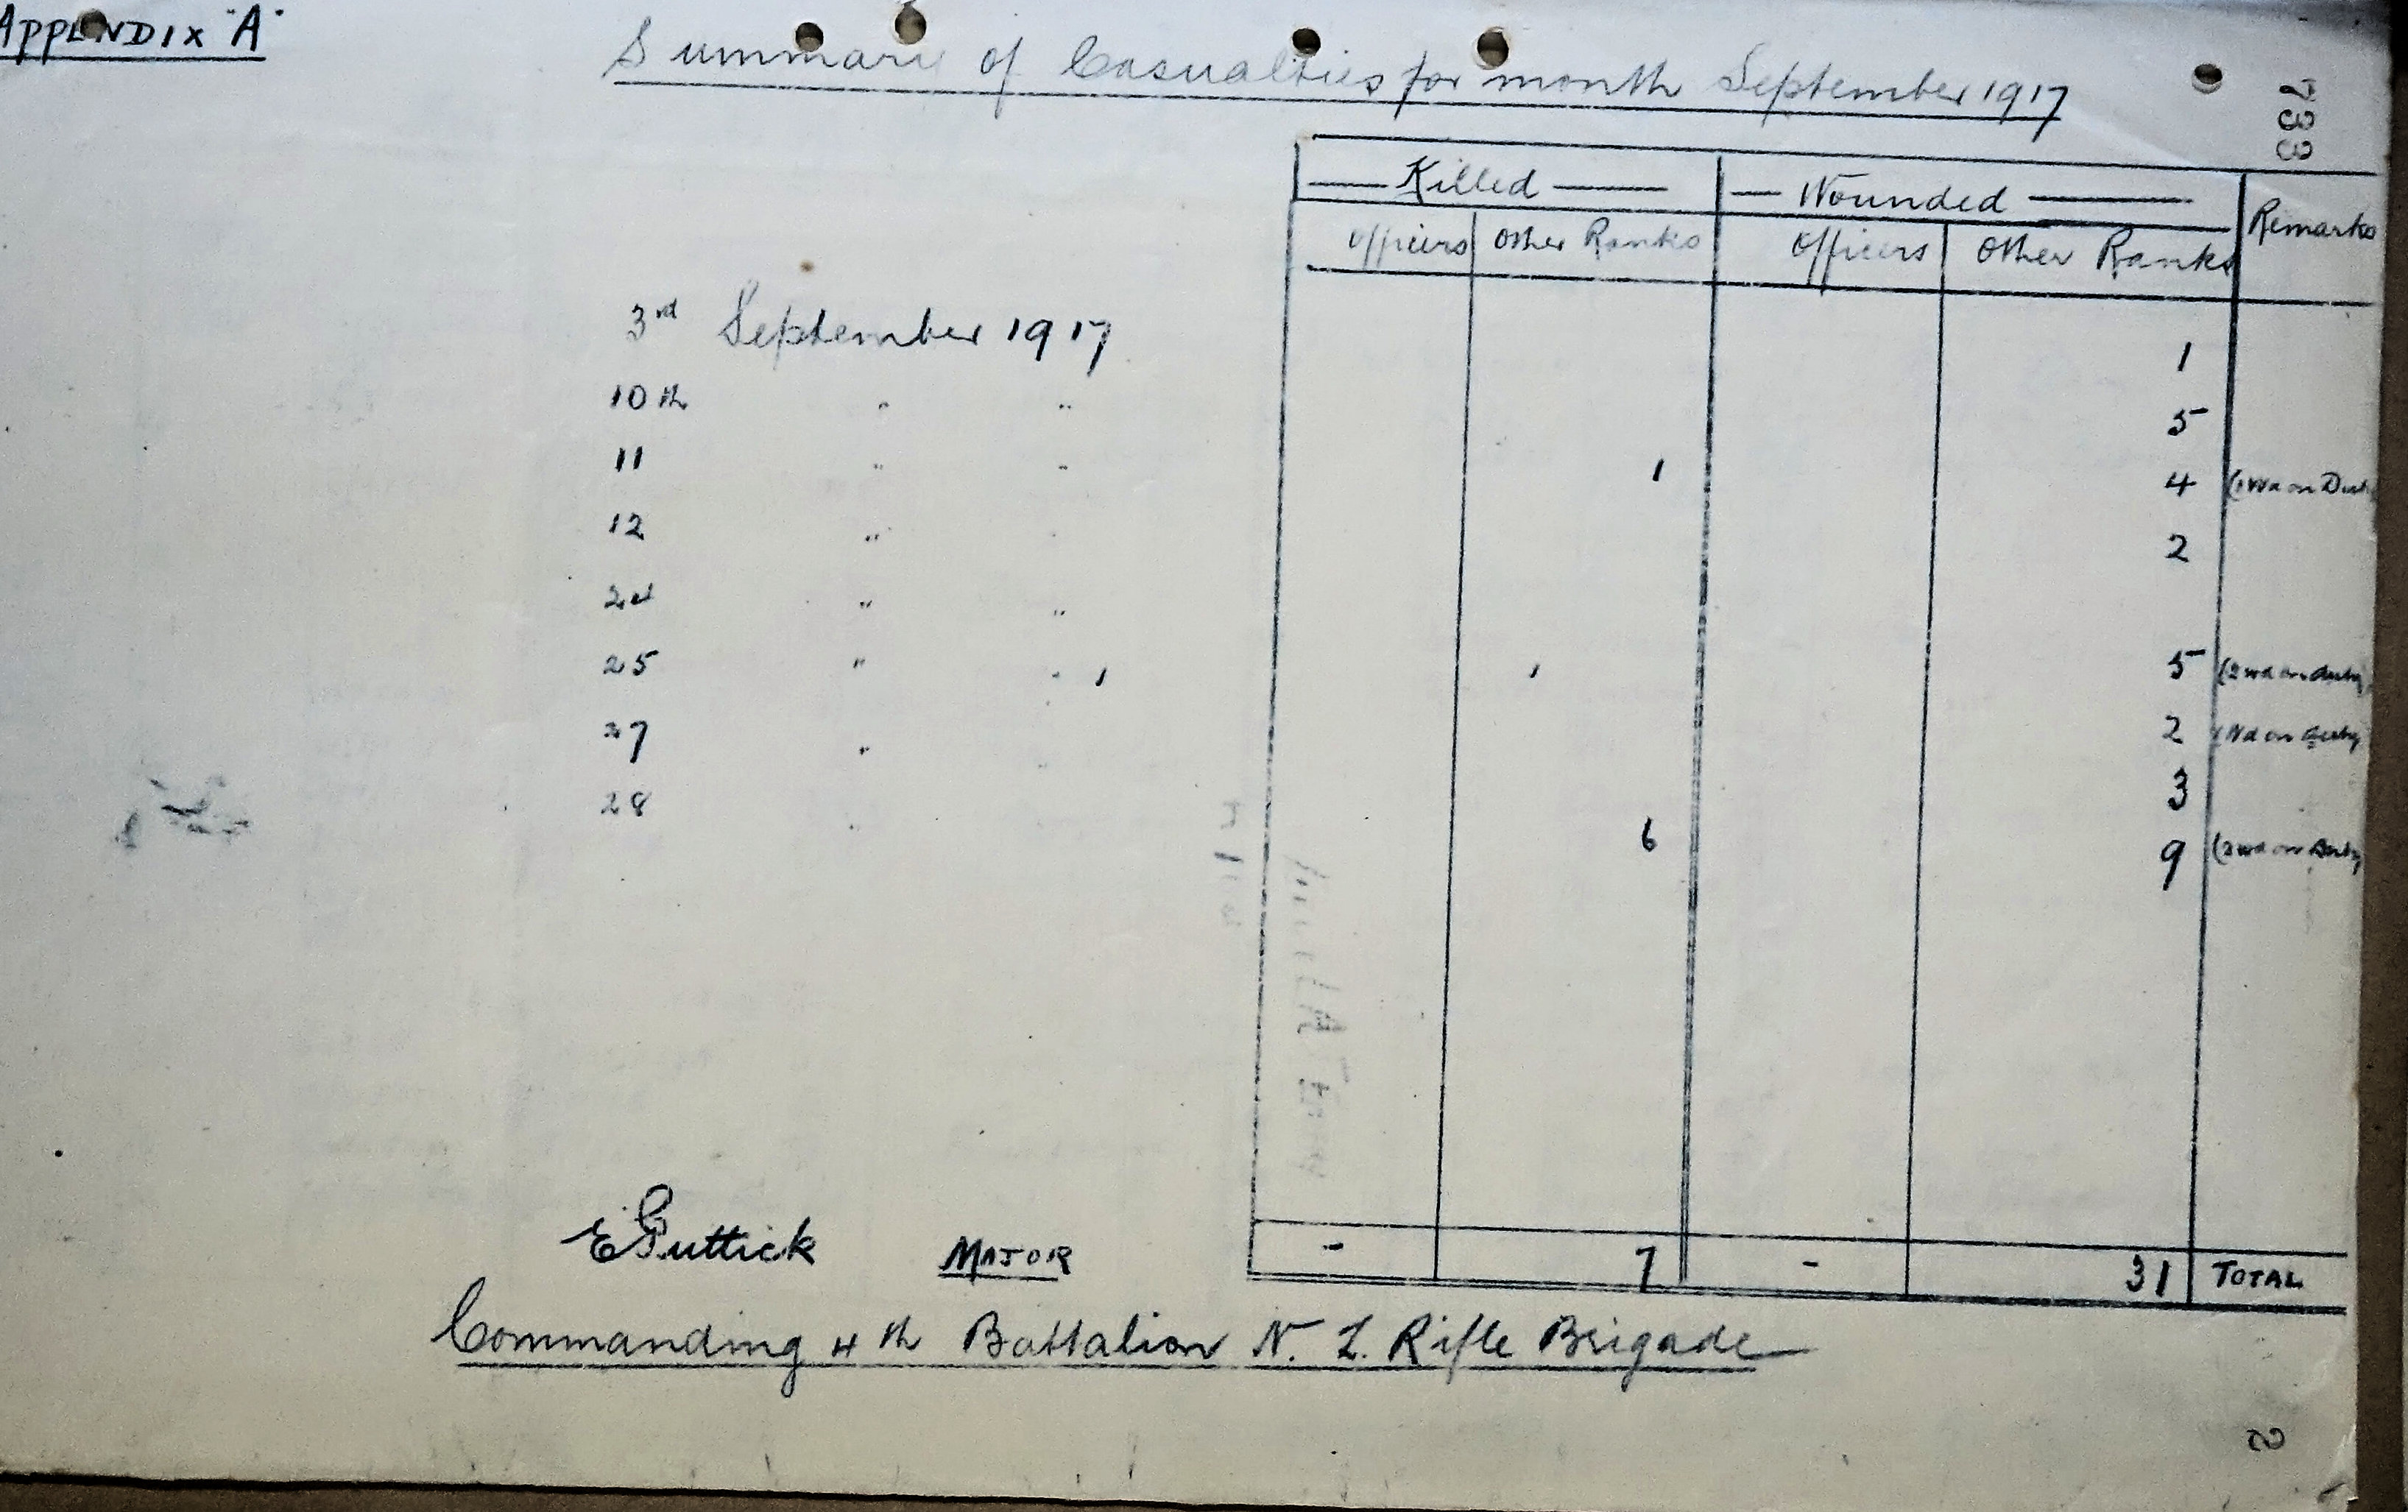 APPENDIX "A"
Summary of Casualties for month September 1917
733
Killed Wounded Remarks
Officers Other Ranks Officers Other Ranks
3rd September 1917 1
10th " " 5
11 " " 1 4 (1 Wd on Dut
12 " " 2
24 " "
25 " " 5 (2 wd on duty)
27 " " 2 (1 Wd on duty
28 " 3
6 9 (2 wd on Duty
E Puttick MAJOR - 7 - 31 TOTAL
Commanding 4th Battalion N. Z. Rifle Brigade